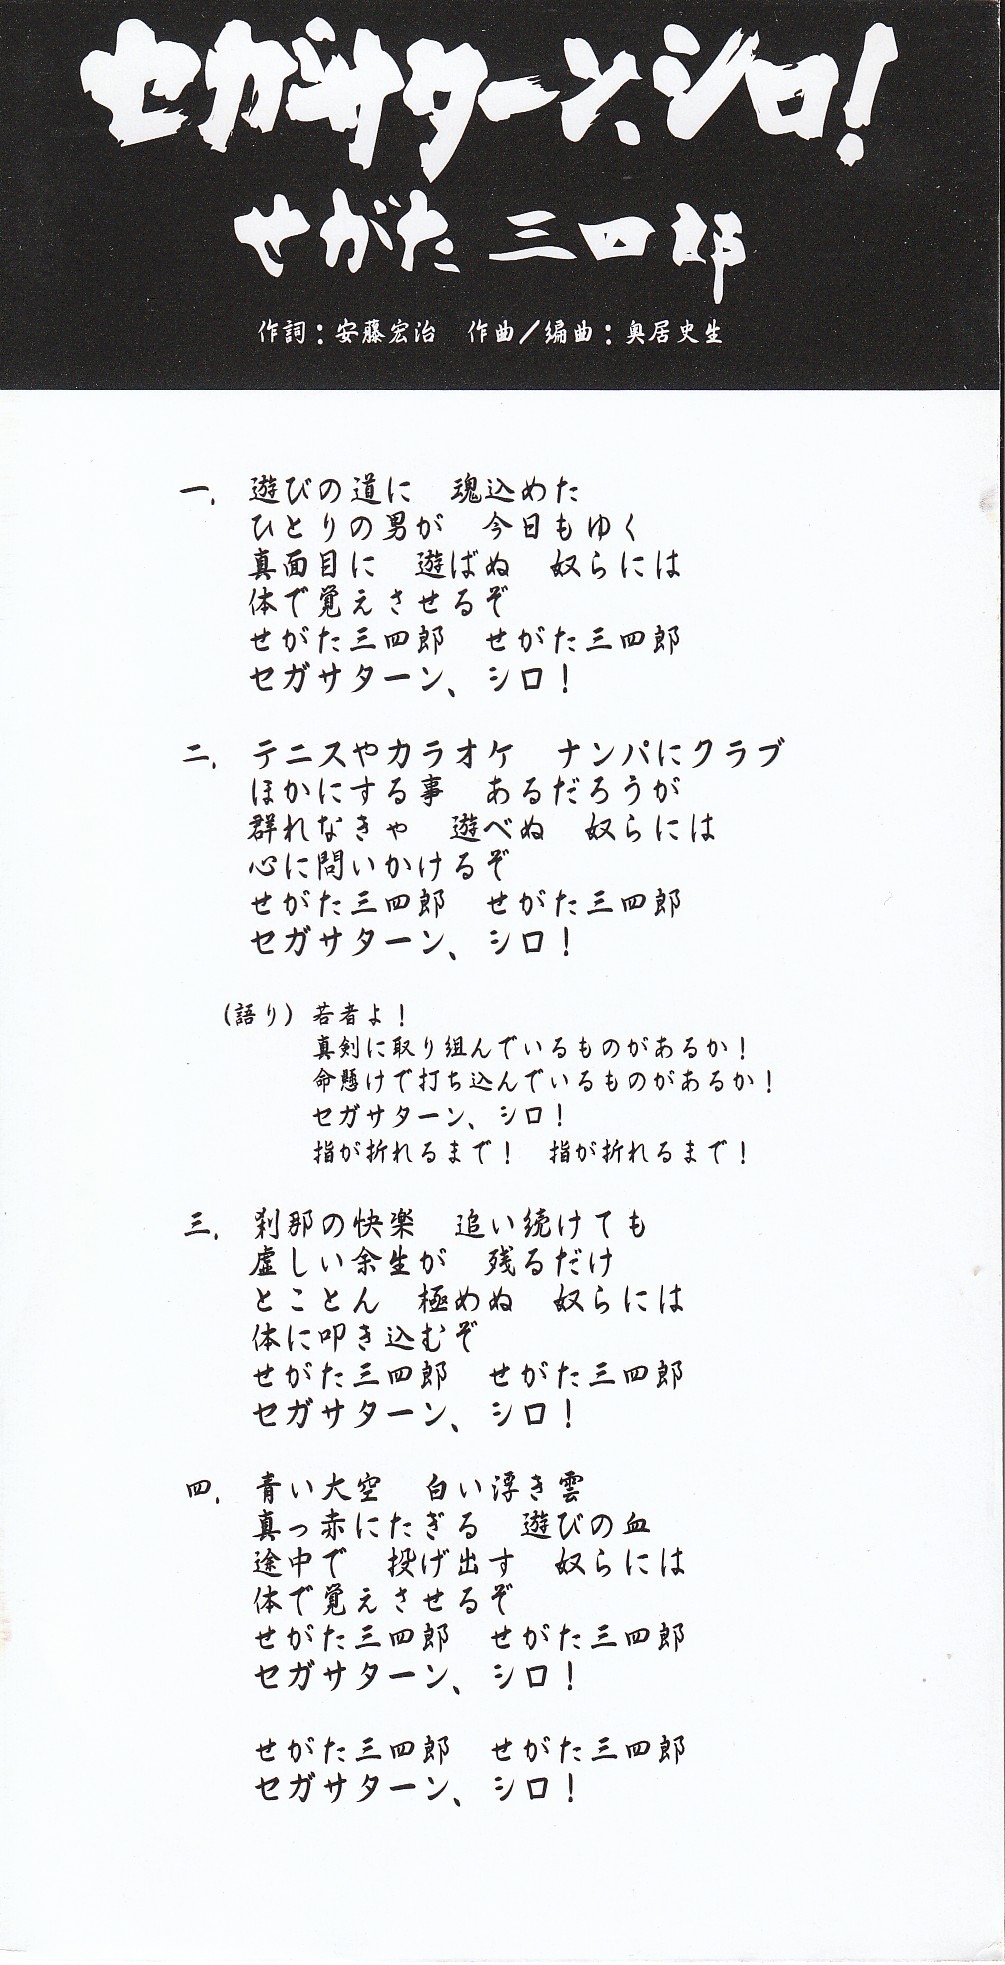 セガサターン、シロ!
せがた三四郎
作詞：安藤宏治　作曲／編曲：奥居史生
一、遊びの道に　魂込めた
ひとりの男が　今日もゆく
真面目に　遊ばぬ　奴らには
体で覚えさせるぞ
せがた三四郎　せがた三四郎
セガサターン、シロ！
二、テニスやカラオケ　ナンパにクラブ
ほかにする事　あるだろうが
群れなきゃ　遊べぬ　奴らには
心に問いかけるぞ
せがた三四郎　せがた三四郎
セガサターン、シロ！
（語り）若者よ！
真剣に取り組んでいるものがあるか！
命懸けで打ち込んでいるものがあるか！
セガサターン、シロ！
指が折れるまで！　指が折れるまで！
三、刹那の快楽　追い続けても
虚しい余生が　残るだけ
とことん　極めぬ　奴らには
体に叩き込むぞ
せがた三四郎　せがた三四郎
セガサターン、シロ！
四、青い大空　白い浮き雲
真っ赤にたぎる　遊びの血
途中で　投げ出す　奴らには
体で覚えさせるぞ
せがた三四郎　せがた三四郎
セガサターン、シロ！
せがた三四郎　せがた三四郎
セガサターン、シロ！